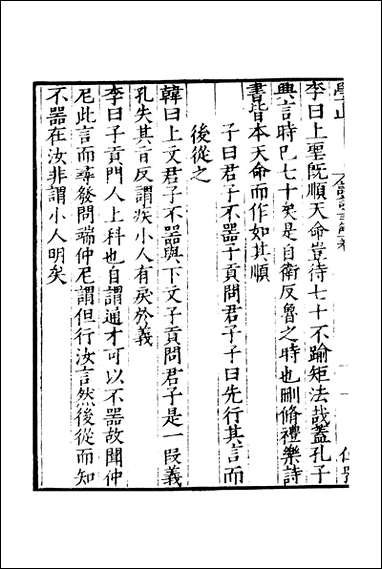 李曰上聖既順天命豈待七十不踰矩法哉蓋孔子
興言時已七十矣是自衛反魯之時也刪脩禮樂詩
書皆本天命而作如其順
子曰君子不器子貢問君子子曰先行其言而
後從之
韓曰上文君子不器與下文子貢問君子是一段義
孔失其旨反謂疾小人有戾於義
李曰子貢門人上科也自謂通才可以不器故聞仲
尼此言而尋發問端仲尼謂但行汝言然後從而知
不器在汝非謂小人明矣